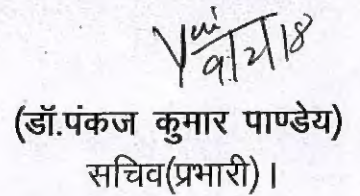 9/2/18
(डॉ.पंकज कुमार पाण्डेय)
सचिव(प्रभारी)।